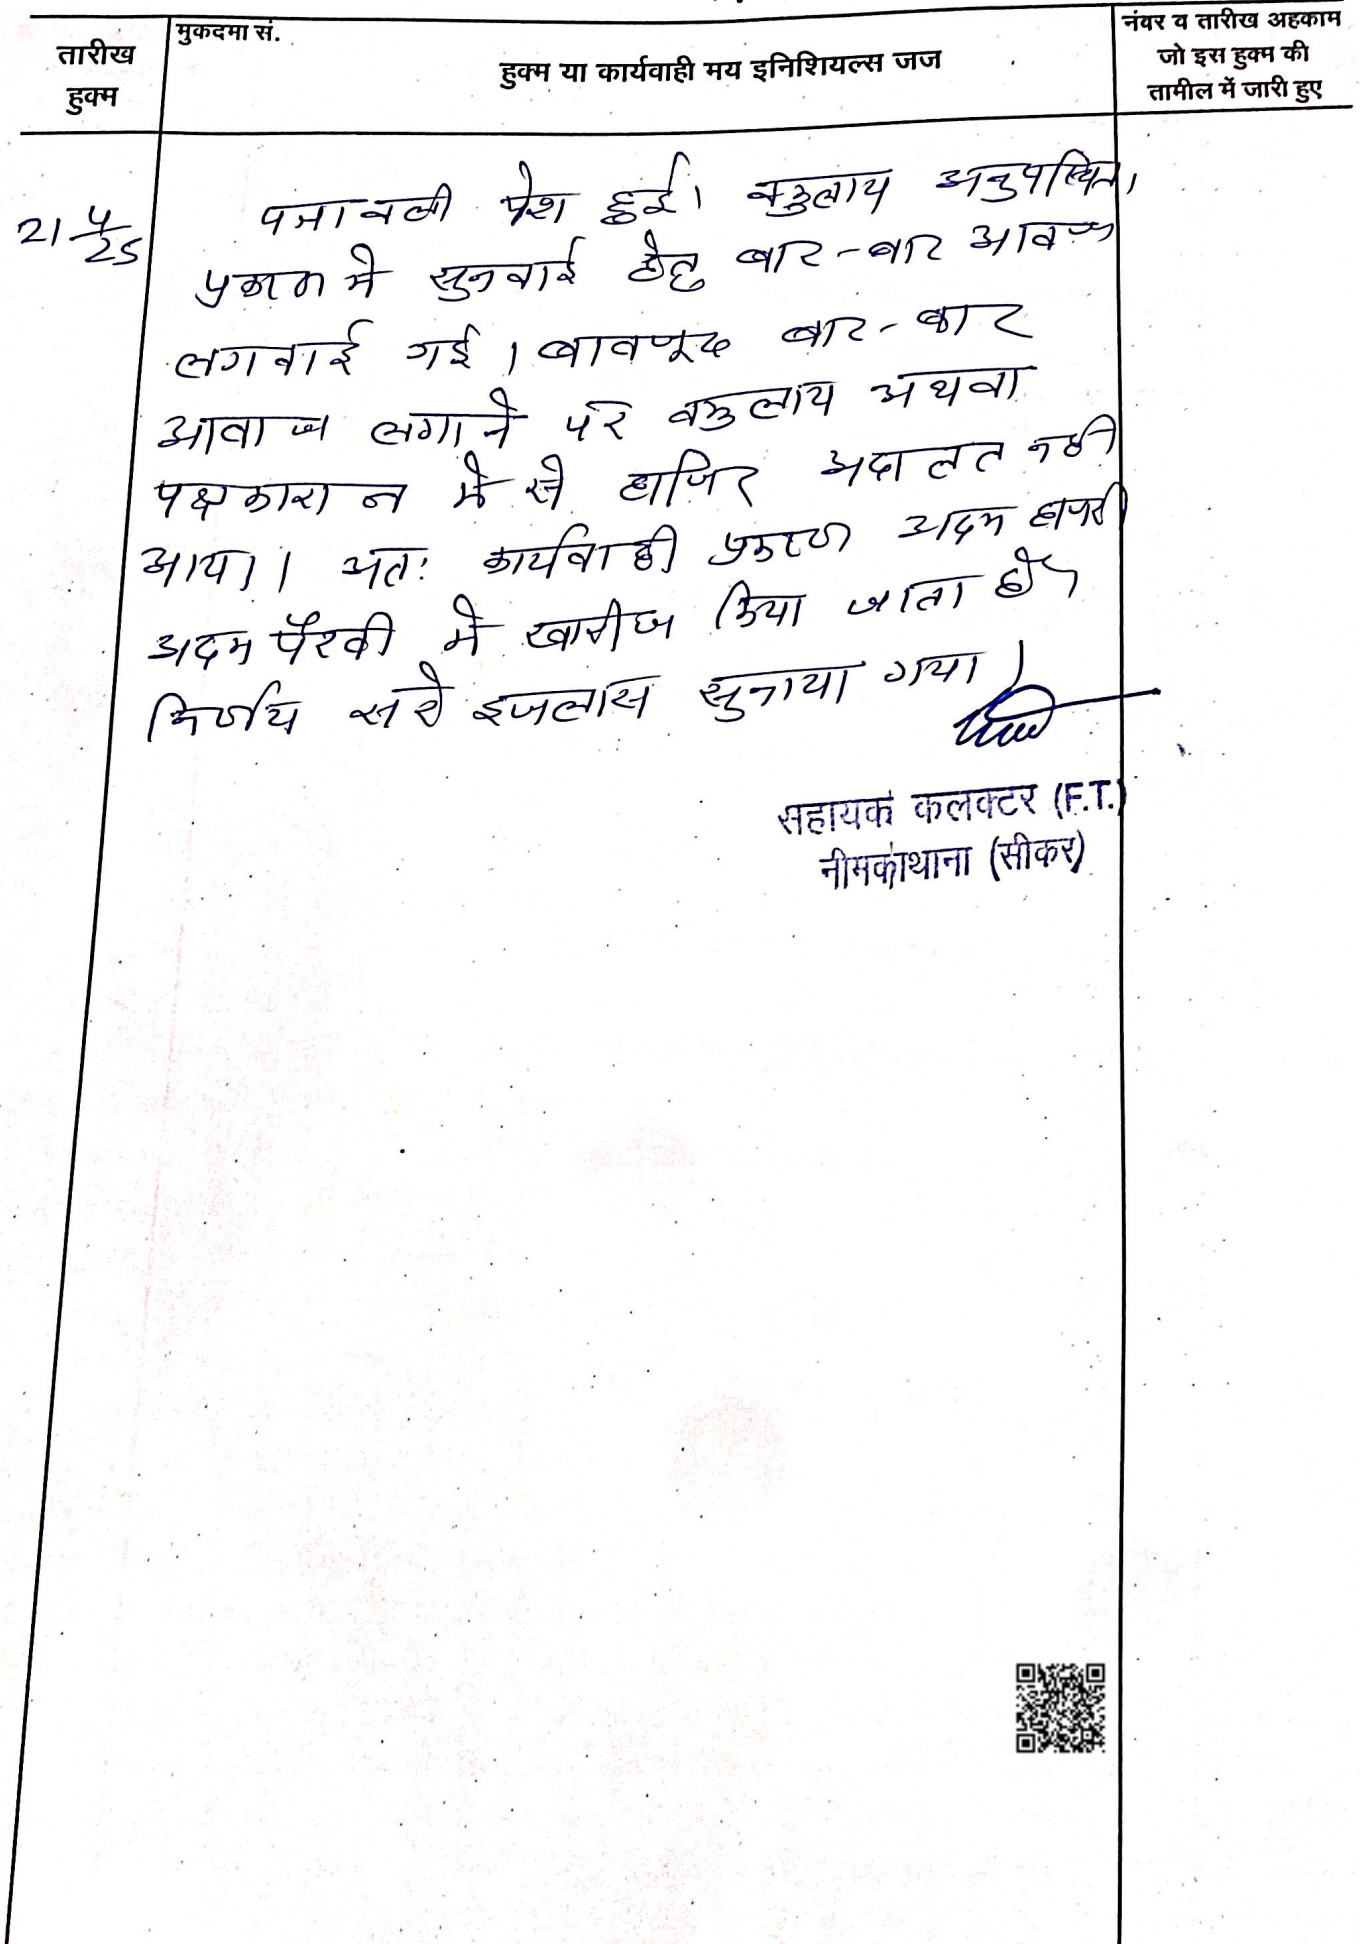 मुकदमा सं.
तारीख
हुक्म
हुक्म या कार्यवाही मय इनिशियल्स जज
नंबर व तारीख अहकाम
जो इस हुक्म की
तामील में जारी हुए
21/4/25
पत्रावली पेश हुई। वकुलाय अनुपस्थित।
प्रकरण मे सुनवाई हेतु बार-बार आवाज
लगवाई गई। बावजूद बार-बार
आवाज लगाने पर वकुलाय अथवा
पक्षकारान मे से हाजिर अदालत नही
आया। अत: कार्यवाही प्रकरण अदम हाजरी
अदम पैरवी मे खारीज किया जाता है।
निर्णय सरे इजलास सुनाया गया।
सहायक कलक्टर (F.T.)
नीमकाथाना (सीकर)